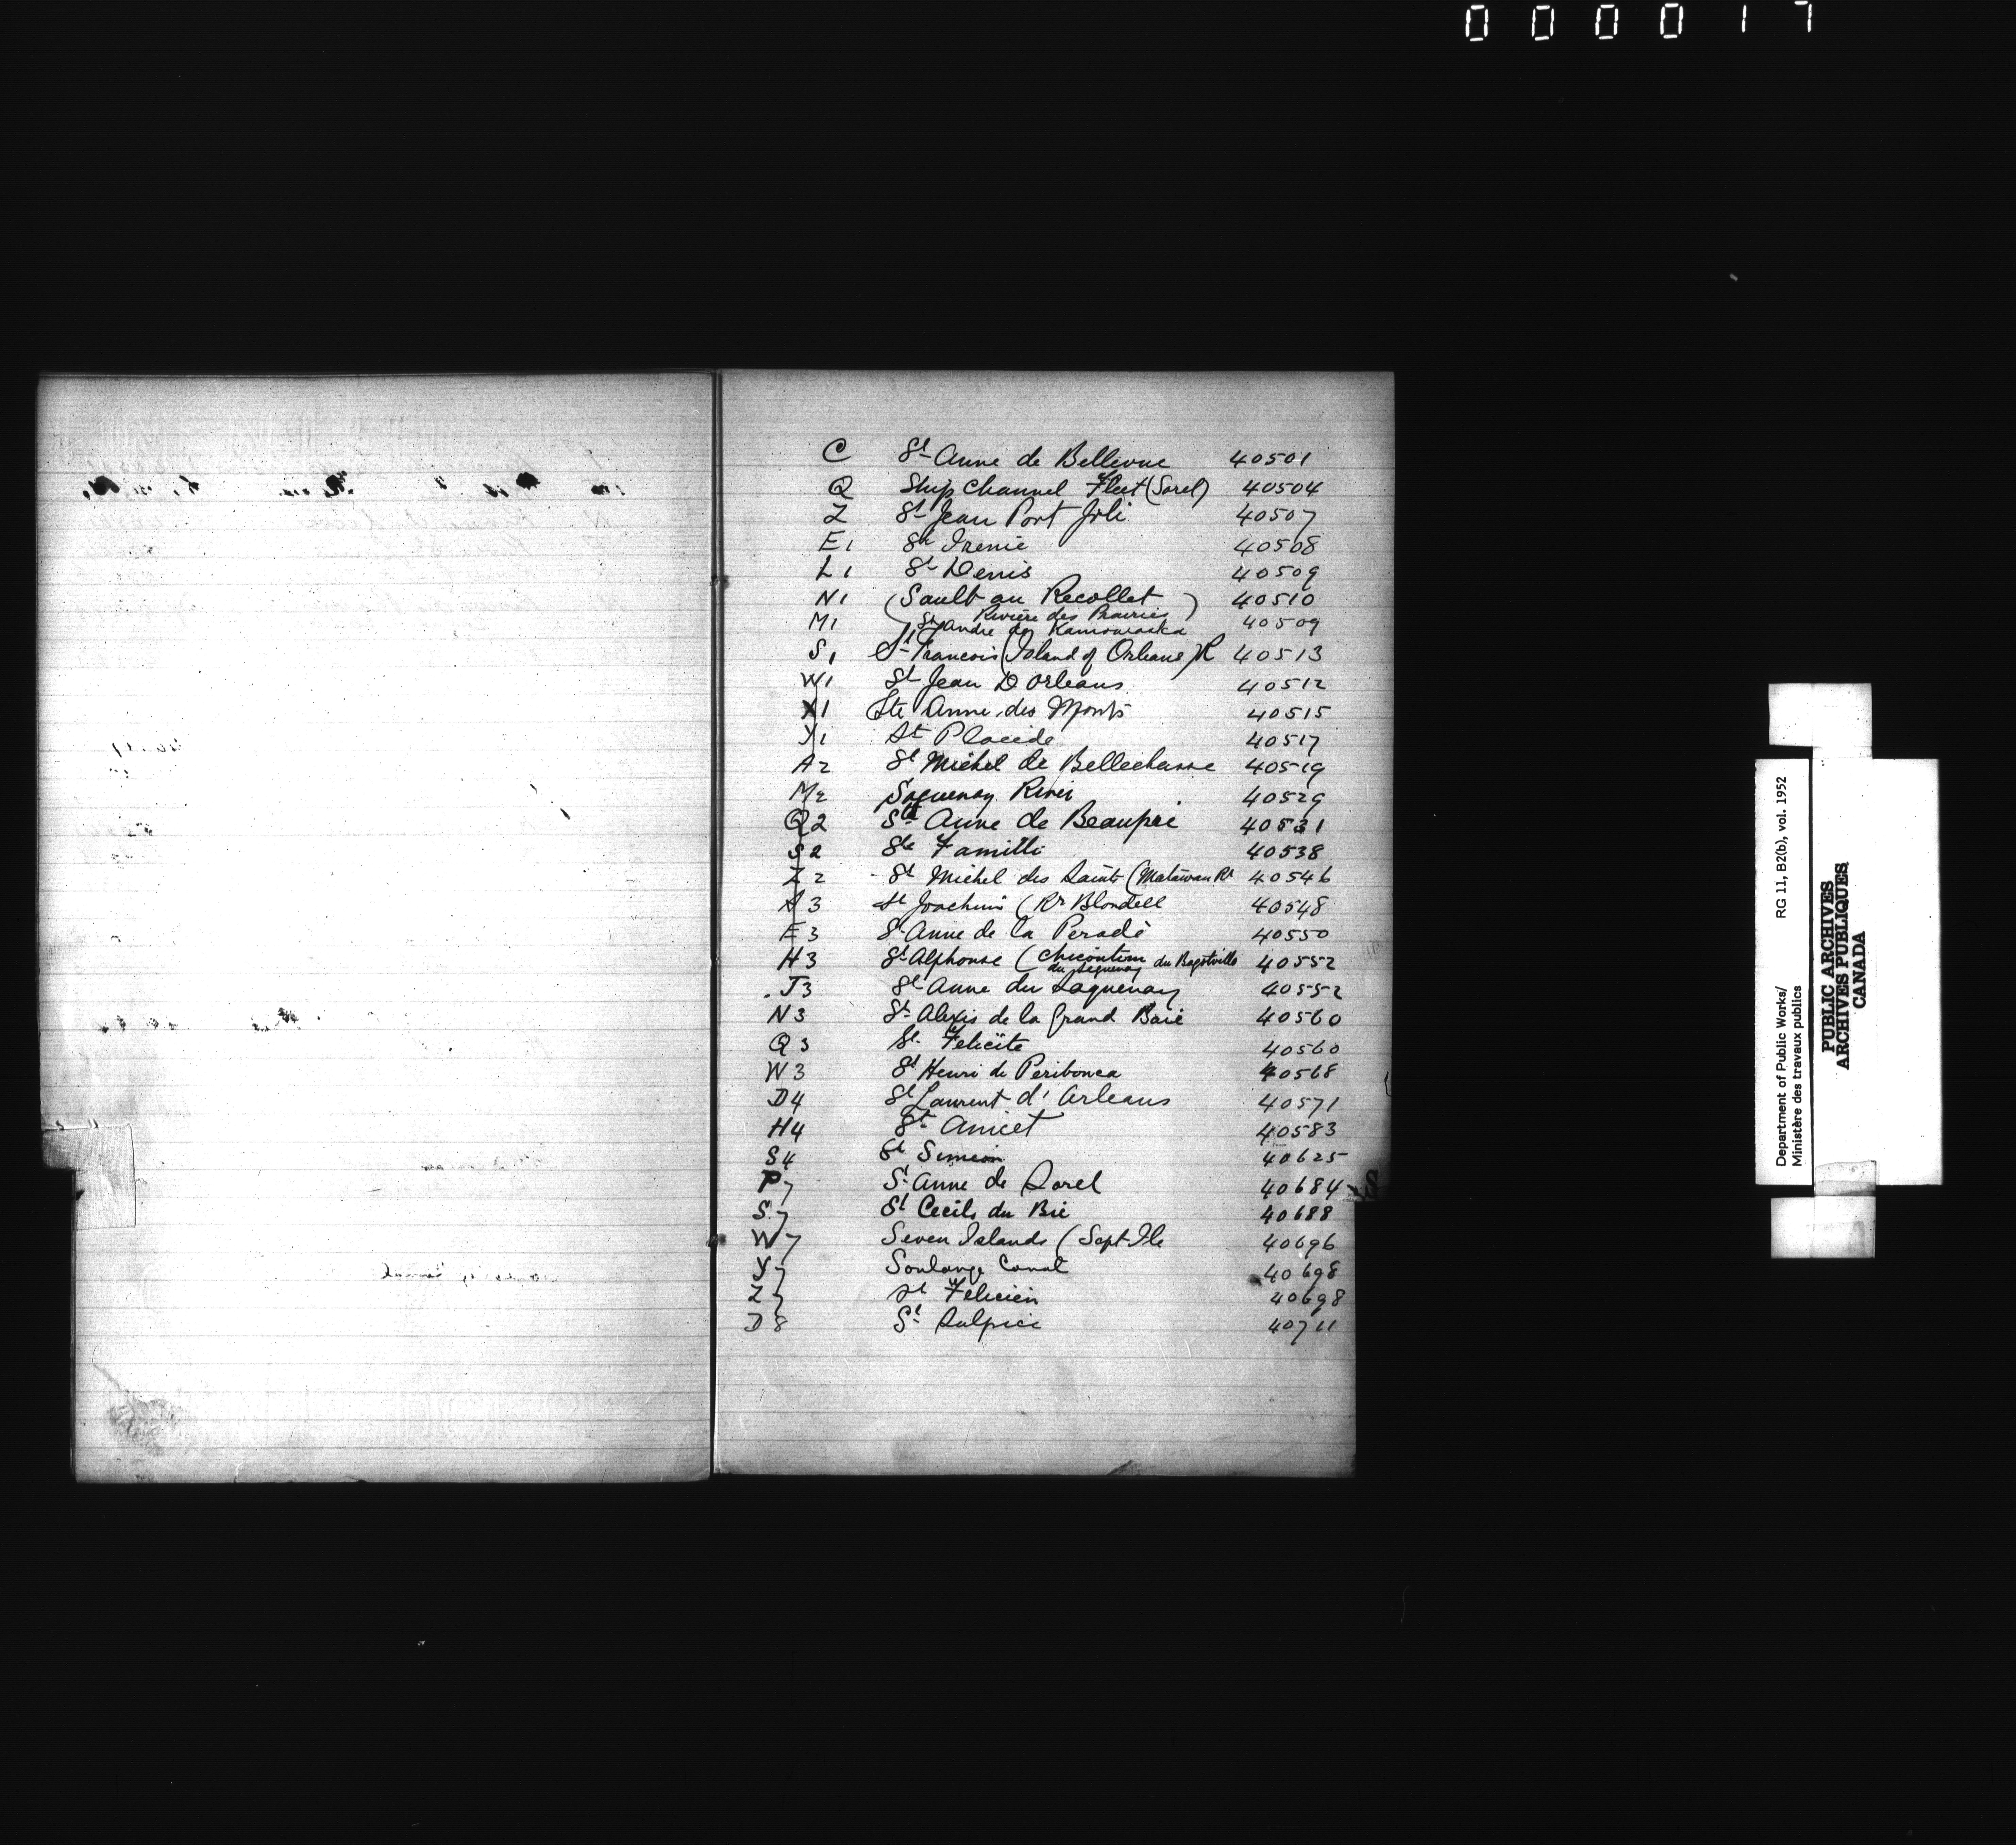 000017
C St Anne de Bellevue 40501
Q Ship Channel Fleet (Sorel) 40504
Z St Jean Port Joli 40507
E1 St Irenie 40508
L1 St Denis 40509
N1 (Sault au Recollet) 40510
Rivière des Prairies
M1 St Andre de Kamouraska 40509
S1 St Francois (Island of Orleans) R 40513
W1 St Jean D Orleans 40512
X1 Ste Anne des Monts 40515
Y1 St Placide 40517
A2 St Michel de Bellechasse 40519
M2 Saguenay River 40529
Q2 Ste Anne de Beaupré 40531
S2 Ste Famille 40538
Z2 St Michel des Saints (Matawan Rr 40546
A3 St Joachim (Rr Blondell 40548
E3 St Anne de la Peradé 40550
H3 St Alphonse (Chicoutimi du Bagotville 40552
du Seguenay
J3 St Anne du Saguenay 40552
N3 St Alexis de la Grand Baie 40560
Q3 St. Felicite 40560
W3 St Henri de Peribonca 40568
D4 St Laurent d'Orleans 40571
H4 St Anicet 40583
S4 St Simeon 40625
P7 St Anne de Sorel 40684
S7 St Cecils du Bic 40688
W7 Seven Islands (Sept Ile 40696
Y7 Soulange Canal 40698
Z7 St Felicien 40698
D8 St Sulpice 40711
Department of Public Works/ RG 11, B2(b), vol. 1952
Ministère des travaux publics
PUBLIC ARCHIVES
ARCHIVES PUBLIQUES
CANADA